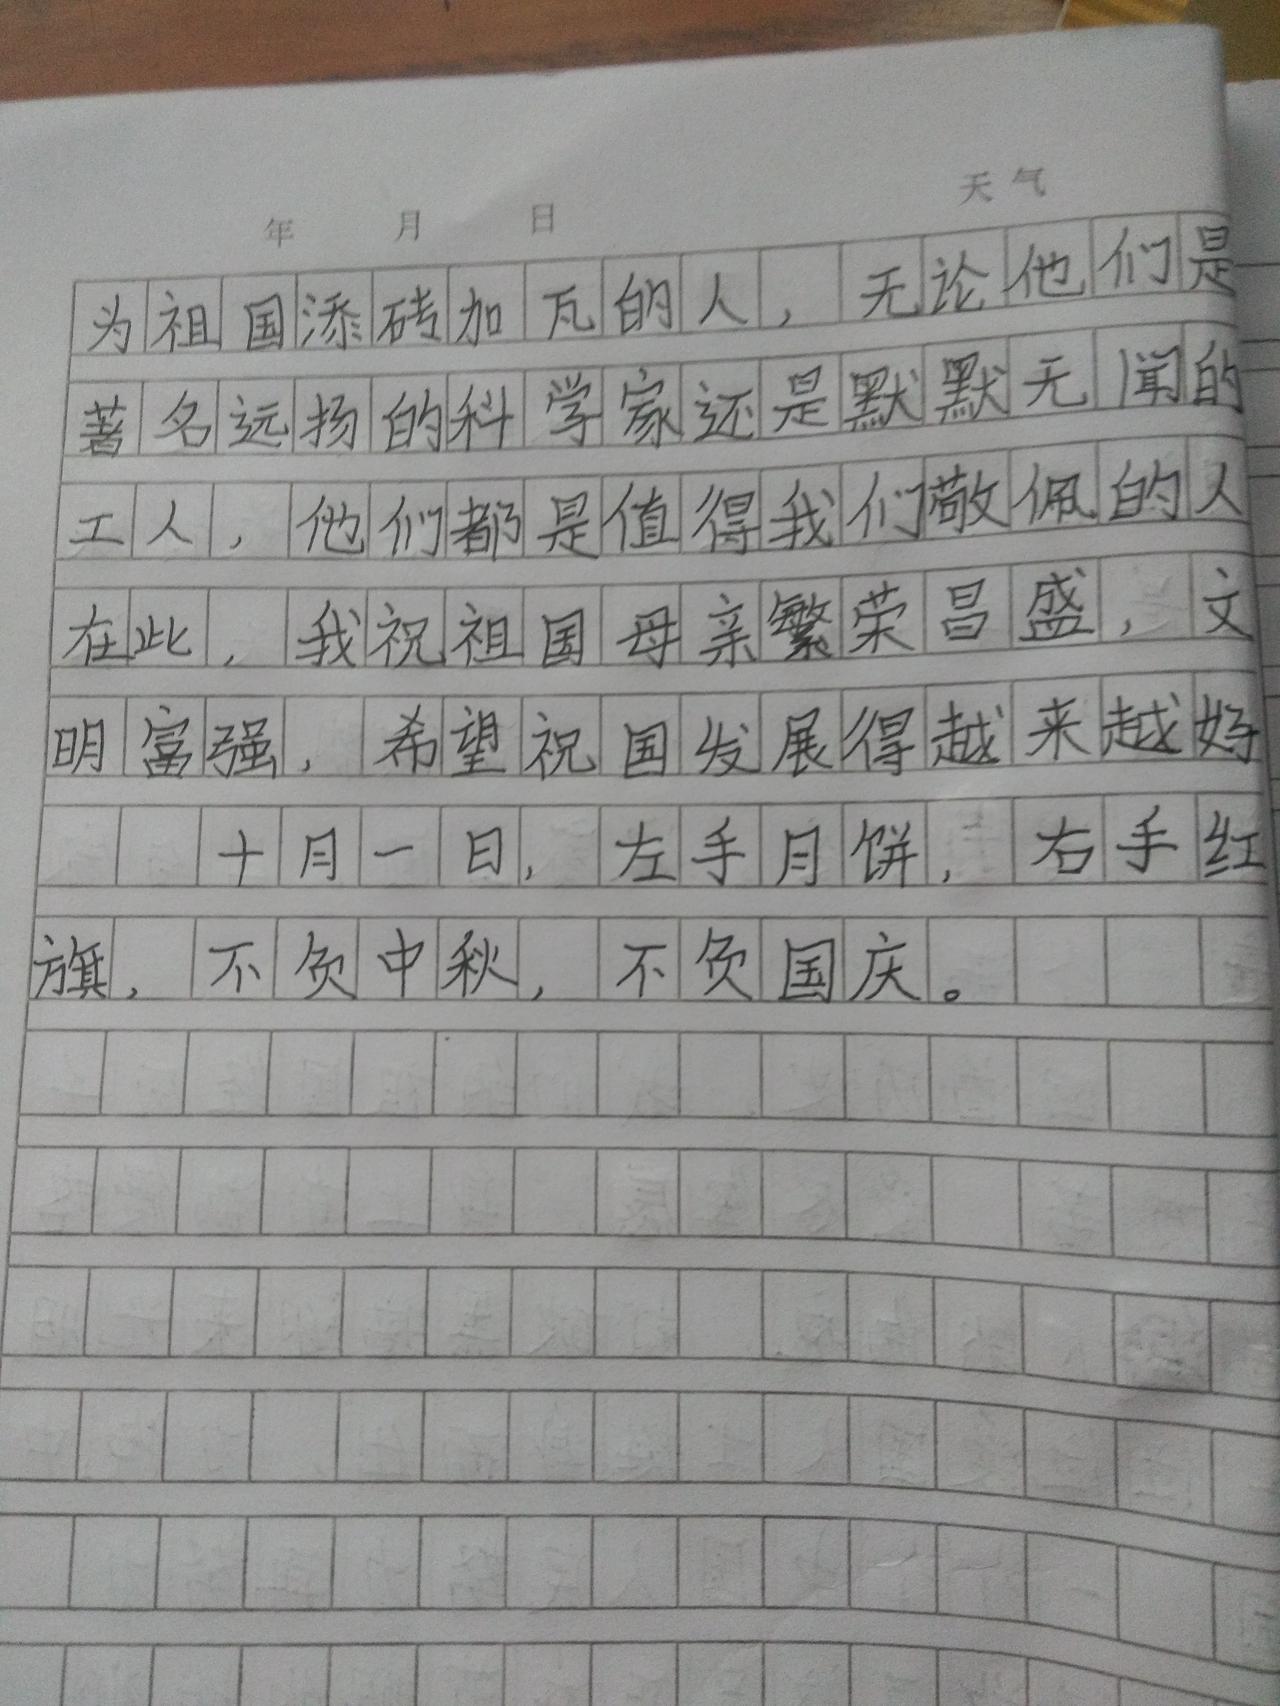 年 月 日 天气
为祖国添砖加瓦的人，无论他们是
著名远扬的科学家还是默默无闻的
工人，他们都是值得我们敬佩的人
在此，我祝祖国母亲繁荣昌盛，文
明富强，希望祝国发展得越来越好
十月一日，左手月饼，右手红
旗，不负中秋，不负国庆。